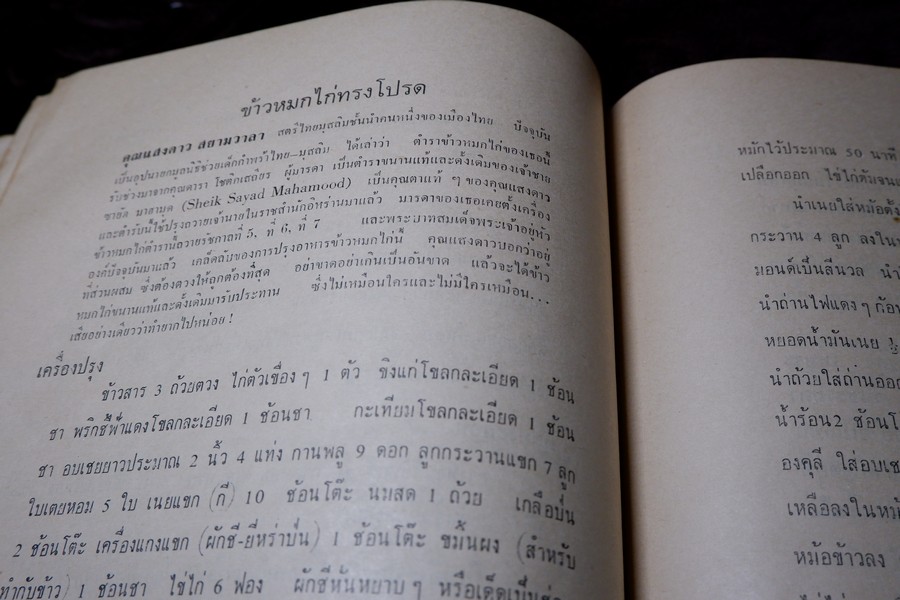 ข้าวหมกไก่ทรงโปรด
คุณแสงดาว สยามวาลา สตรีไทยมุสลิมชั้นนำคนหนึ่งของเมืองไทย ปัจจุบัน
เป็นอุปนายกมูลนิธิช่วยเด็กกำพร้าไทย–มุสลิม ได้เล่าว่า ตำราข้าวหมกไก่ของเธอนี้
รับช่วงมาจากคุณดารา โชติกเสถียร ผู้มารดา เป็นตำราขนานแท้และดั้งเดิมของเจ้าชาย
ซายิด มาฮามูด (Sheik Sayad Mahamood) เป็นคุณตาแท้ ๆ ของคุณแสงดาว
และตำรับนี้ใช้ปรุงถวายเจ้านายในราชสำนักอิหร่านมาแล้ว มารดาของเธอเคยตั้งเครื่อง
ข้าวหมกไก่ตำรานี้ถวายรัชกาลที่ 5, ที่ 6, ที่ 7 และพระบาทสมเด็จพระเจ้าอยู่หัว
องค์ปัจจุบันมาแล้ว เกล็ดลับของการปรุงอาหารข้าวหมกไก่นี้ คุณแสงดาวบอกว่าอยู่
ที่ส่วนผสม ซึ่งต้องตวงให้ถูกต้องที่สุด อย่าขาดอย่าเกินเป็นอันขาด แล้วจะได้ข้าว
หมกไก่ขนานแท้และดั้งเดิมมารับประทาน ซึ่งไม่เหมือนใครและไม่มีใครเหมือน...
เสียอย่างเดียวว่าทำยากไปหน่อย !
เครื่องปรุง
ข้าวสาร 3 ถ้วยตวง ไก่ตัวเขื่อง ๆ 1 ตัว ขิงแก่โขลกละเอียด 1 ช้อน
ชา พริกชี้ฟ้าแดงโขลกละเอียด 1 ช้อนชา กะเทียมโขลกละเอียด 1 ช้อน
ชา อบเชยยาวประมาณ 2 นิ้ว 4 แท่ง กานพลู 9 ดอก ลูกกระวานแขก 7 ลูก
ใบเตยหอม 5 ใบ เนยแขก (กี) 10 ช้อนโต๊ะ นมสด 1 ถ้วย เกลือป่น
2 ช้อนโต๊ะ เครื่องแกงแขก (ผักชี-ยี่หร่าป่น) 1 ช้อนโต๊ะ ขมิ้นผง (สำหรับ
ทำกับข้าว) 1 ช้อนชา ไข่ไก่ 6 ฟอง ผักชีหั่นหยาบ ๆ หรือเด็ดเป็น
หมักไว้ประมาณ 50 นาที
เปลือกออก ไข่ไก่ต้ม
นำเนยใส่หม้อตั้ง
กระวาน 4 ลูก ลงใน
มอนด์เป็นสีนวล นำ
นำถ่านไฟแดง ๆ ก้อน
หยอดน้ำมันเนย
นำถ้วยใส่ถ่านออก
น้ำร้อน 2 ช้อนโ
องคุลี ใส่อบเช
เหลือลงในหม้
หม้อข้าวลง